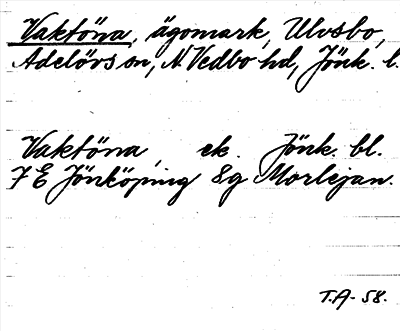 Vaktöna, ägomark, Ulvsbo,
Adelövs sn, N Vedbo hd, Jönk. l.
Vaktöna, ek. Jönk. bl.
7 E Jönköping 8g Morlejan.
T.A- 58.